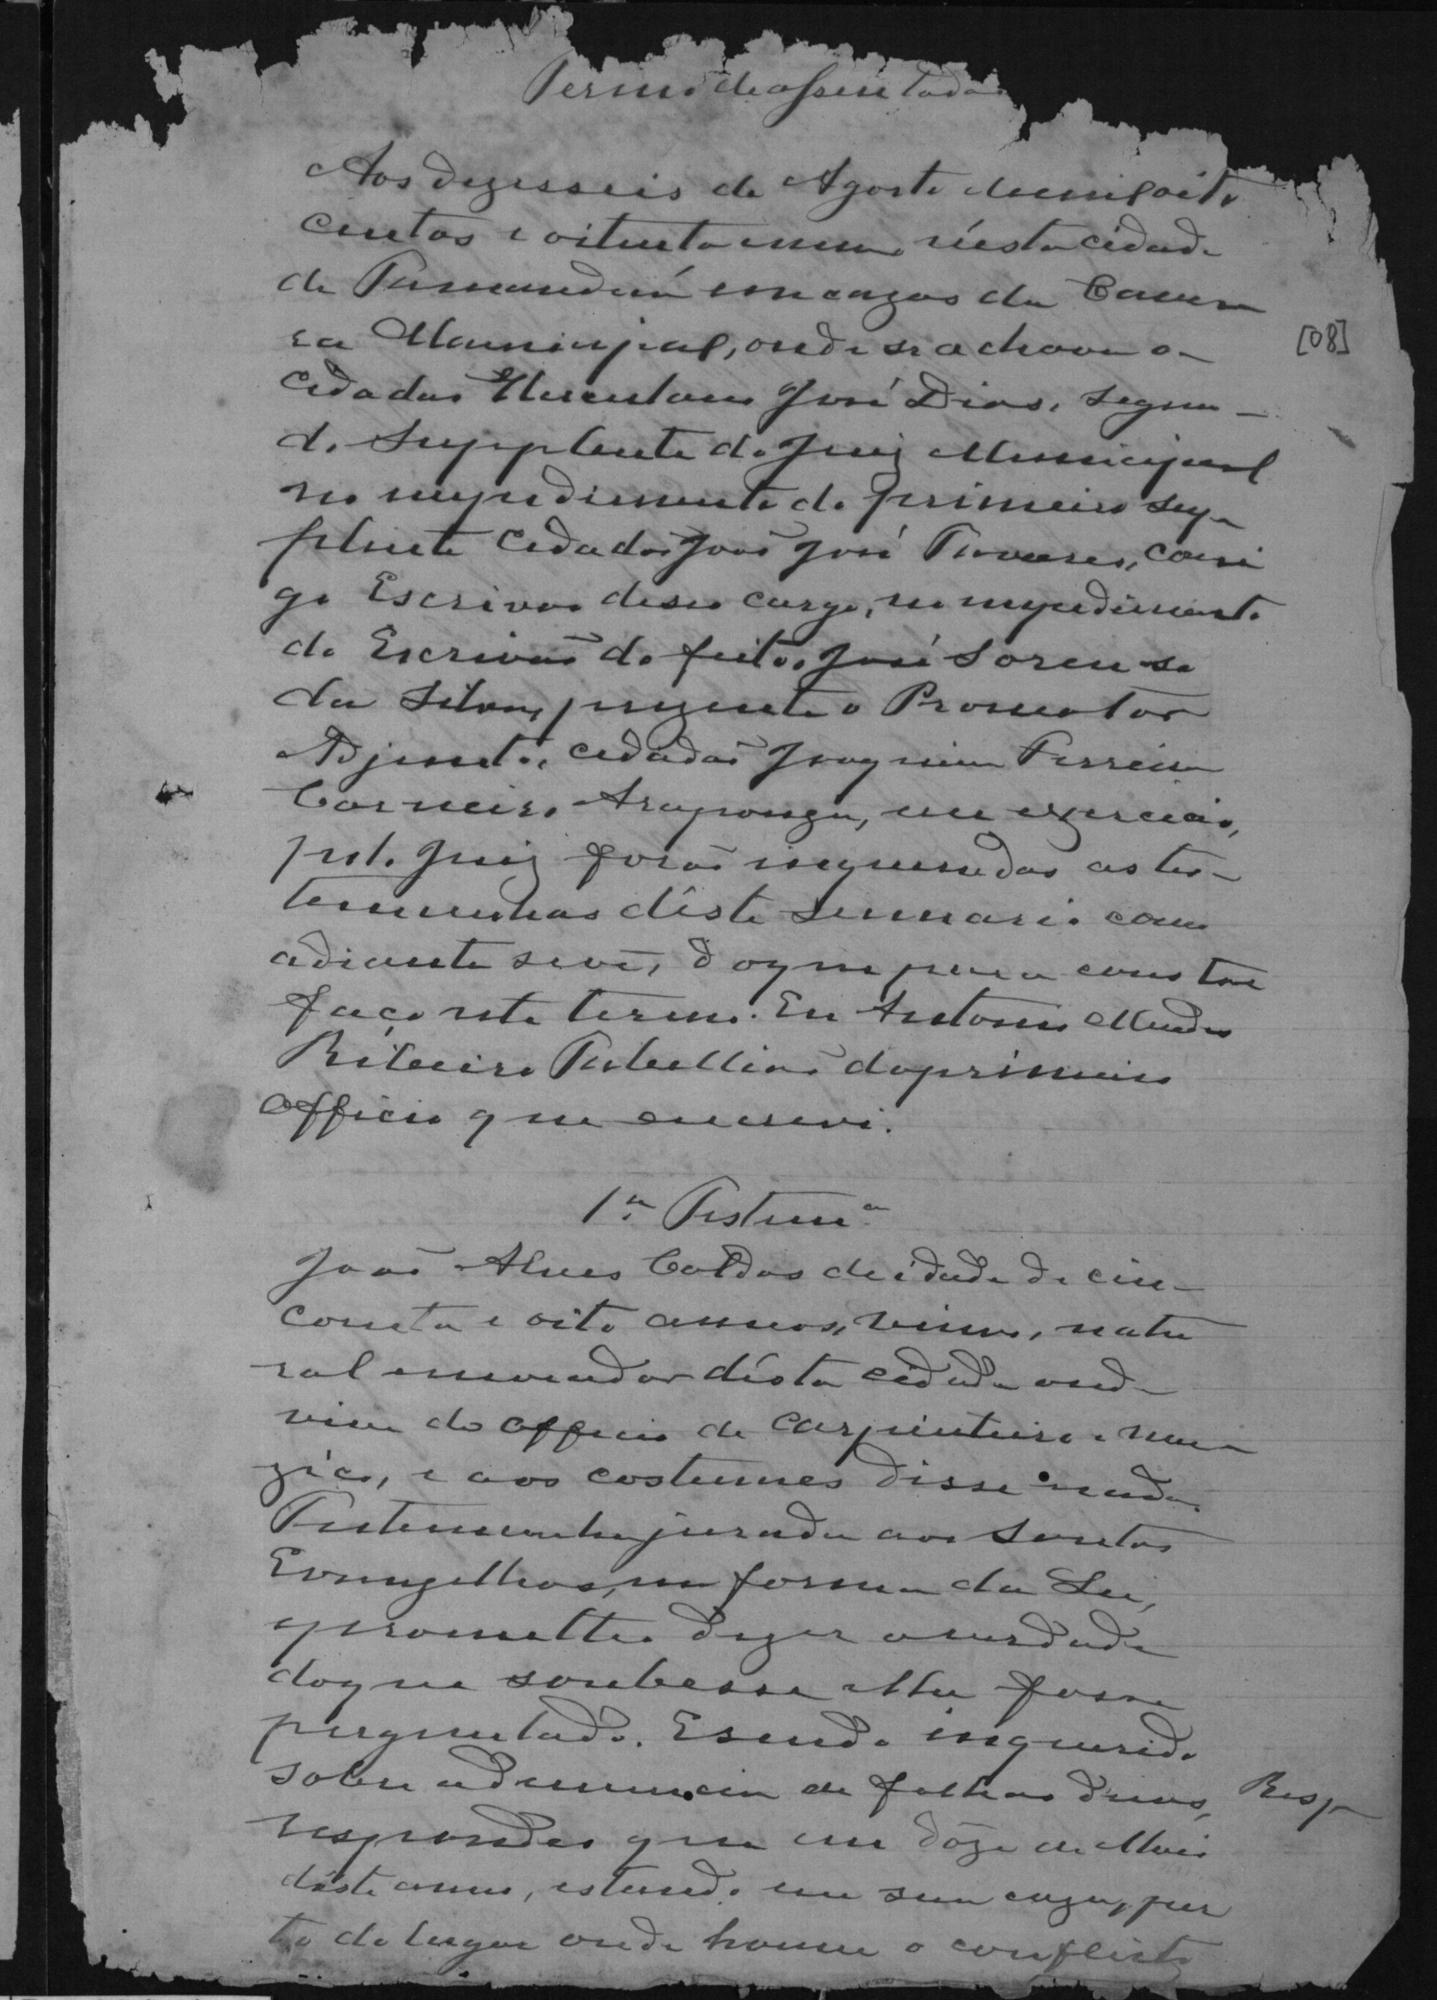 Termo de assentada
Aos dezesseis de Agosto de mil oito
centos e oitenta e um, n'esta cidade
de Tamanduá em cazas da Cama
ra Municipal, onde se achava o
cidadão Herculano José Dias, segun-
do Supplente do Juiz Municipal
no impedimento do primeiro sup-
plente cidadão João José Tavares, comi
go Escrivão de seo cargo, no impedimento
do Escrivão do feito, José Lorenso
da Silva, prezente o Promotor
Adjunto, cidadão Joaquim Ferreira
Carneiro Araponga, em exercicio,
pelo Juiz forão inqueridas as tes-
temunhas dêste summario como
adiante se vê, do que para constar
faço este termo. Eu Antonio Mendes
Ribeiro Tabellião do primeiro
Officio que escrevi.
1ª Testemª
João Alves Caldas de idade de cin-
coenta e oito annos, viuvo, natu
ral e morador désta cidade onde
vive do officio de carpinteiro e mu-
zico, e aos costumes disse nada.
Testemunha jurada aos Santos
Evangelhos, na forma da Lei,
e prometteo dizer a verdade
do que soubesse e lhe fosse
perguntado. E sendo inquerido
sobre a denuncia de folhas duas,
Resp
respondeo que em dôze de Maio
déste anno, estando em sua caza, per
to do lugar onde houve o conflicto